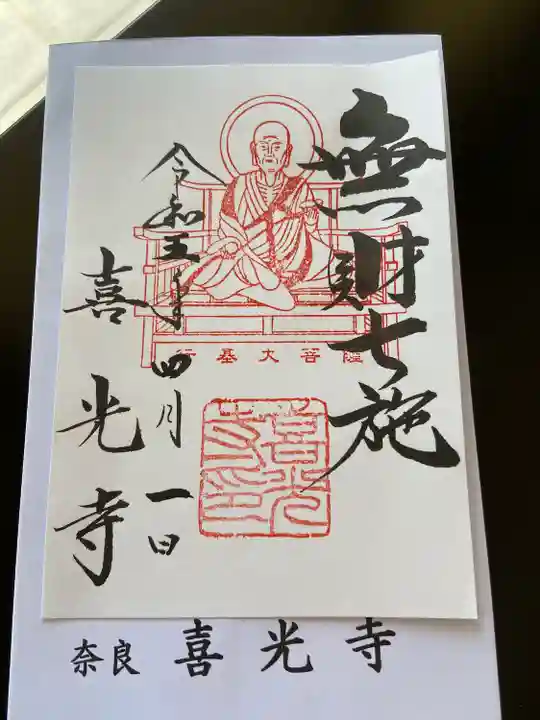 無財七施
令和五年四月一日
喜光寺
行基大菩薩
喜光寺之印
奈良 喜光寺